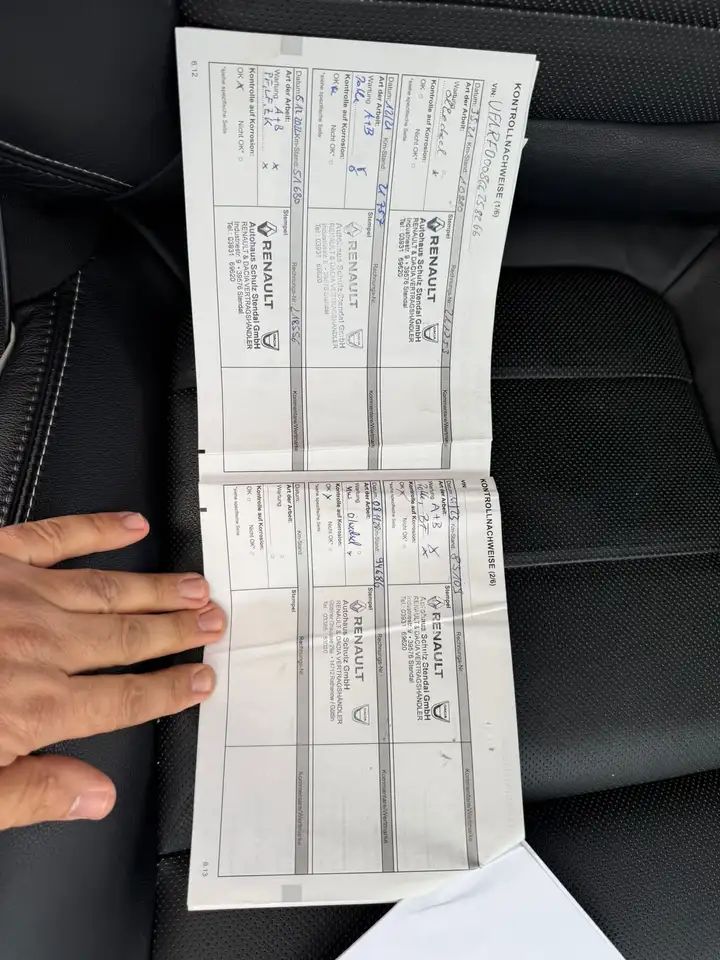 KONTROLLNACHWEISE (1/6)
VIN:
Datum: Km-Stand: Rechnungs-Nr.
Art der Arbeit: Stempel Kommentare/Wertmarke
Wartung
Ölwechsel
Kontrolle auf Korrosion:
OK Nicht OK*
*siehe spezifische Seite
RENAULT
Autohaus Schulz Stendal GmbH
RENAULT & DACIA VERTRAGSHÄNDLER
Industriestr. 9 • 39576 Stendal
Tel.: 03931 69620
Datum: 12/21 Km-Stand: 21 757 Rechnungs-Nr.
Art der Arbeit: Stempel Kommentare/Wertmarke
Wartung A+B
Kontrolle auf Korrosion:
OK Nicht OK*
*siehe spezifische Seite
RENAULT
Autohaus Schulz Stendal GmbH
RENAULT & DACIA VERTRAGSHÄNDLER
Industriestr. 9 • 39576 Stendal
Tel.: 03931 69620
Datum: 6.12.2022 Km-Stand: 51 680 Rechnungs-Nr.: 218556
Art der Arbeit: Stempel Kommentare/Wertmarke
Wartung A+B x
PF, LF, ZK x
Kontrolle auf Korrosion:
OK x Nicht OK*
*siehe spezifische Seite
RENAULT
Autohaus Schulz Stendal GmbH
RENAULT & DACIA VERTRAGSHÄNDLER
Industriestr. 9 • 39576 Stendal
Tel.: 03931 69620
6.12
KONTROLLNACHWEISE (2/6)
VIN:
Datum: Km-Stand: 83109 Rechnungs-Nr.
Art der Arbeit: Stempel Kommentare/Wertmarke
Wartung A+B x
Kontrolle auf Korrosion:
OK x Nicht OK*
*siehe spezifische Seite
RENAULT
Autohaus Schulz Stendal GmbH
RENAULT & DACIA VERTRAGSHÄNDLER
Industriestr. 9 • 39576 Stendal
Tel.: 03931 69620
Datum: Km-Stand: 94686 Rechnungs-Nr.
Art der Arbeit: Stempel Kommentare/Wertmarke
Wartung
Kontrolle auf Korrosion:
OK x Nicht OK*
*siehe spezifische Seite
RENAULT
Autohaus Schulz GmbH
RENAULT & DACIA VERTRAGSHÄNDLER
Datum: Km-Stand: Rechnungs-Nr.
Art der Arbeit: Stempel Kommentare/Wertmarke
Wartung
Kontrolle auf Korrosion:
OK Nicht OK*
*siehe spezifische Seite
6.13